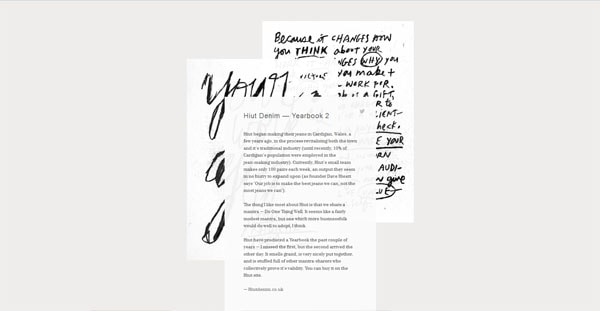 Because it CHANGES HOW
you THINK about YOUR
NGES WHY you
you make +
WORK FOR.
A GIFT,
R to
IENT-
heck.
E YOUR
RN
AUDI-
give
Hiut Denim — Yearbook 2
Hiut began making their jeans in Cardigan, Wales, a
few years ago, in the process revitalising both the town
and it's traditional industry (until recently, 10% of
Cardigan's population were employed in the
jean-making industry). Currently, Hiut's small team
makes only 100 pairs each week, an output they seem
in no hurry to expand upon (as founder Dave Hieatt
says 'Our job is to make the best jeans we can, not the
most jeans we can').
The thing I like most about Hiut is that we share a
mantra — Do One Thing Well. It seems like a fairly
modest mantra, but one which more businessfolk
would do well to adopt, I think.
Hiut have produced a Yearbook the past couple of
years — I missed the first, but the second arrived the
other day. It smells grand, is very nicely put together,
and is stuffed full of other mantra-sharers who
collectively prove it's validity. You can buy it on the
Hiut site.
— Hiutdenim.co.uk